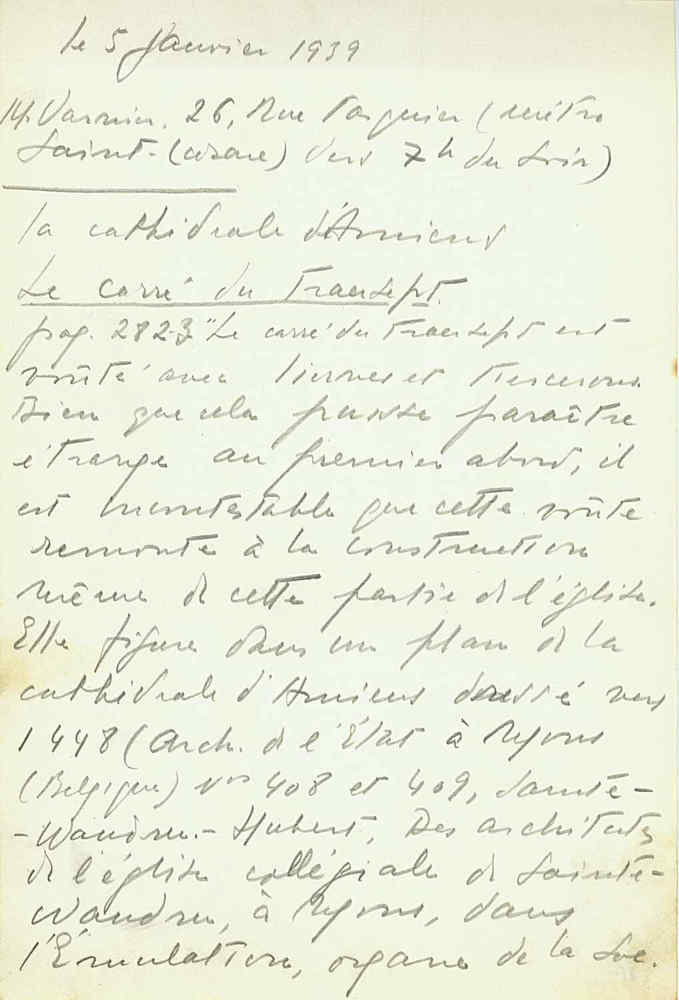 le 5 Janvier 1939
M. Varnier, 26, Rue (métro
Saint- (Césaire) vers 7h du soir)
la cathédrale d'Amiens
Le carré du Transept.
pag. 282-3 "Le carré du Transept est
voûté avec liernes et Tiercerons.
Bien que cela puisse paraître
étrange au premier abord, il
est incontestable que cette voûte
remonte à la construction
même de cette partie de l'église.
Elle figure dans un plan de la
cathédrale d'Amiens dressé vers
1448 (Arch. de l'État à Mons
(Belgique) nos 408 et 409, Sainte-
-Waudru.- Hubert, Des architectes
de l'église collégiale de Sainte-
Waudru, à Mons, dans
l'Émulation, organe de la Soc.